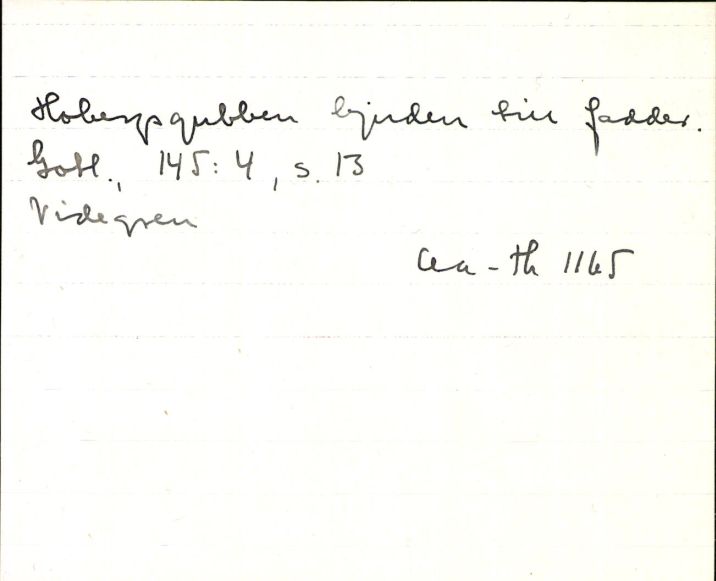 Hobergsgubben bjuden till fadder.
Gotl., 145:4, s. 13
Videgren
Aa-th 1165